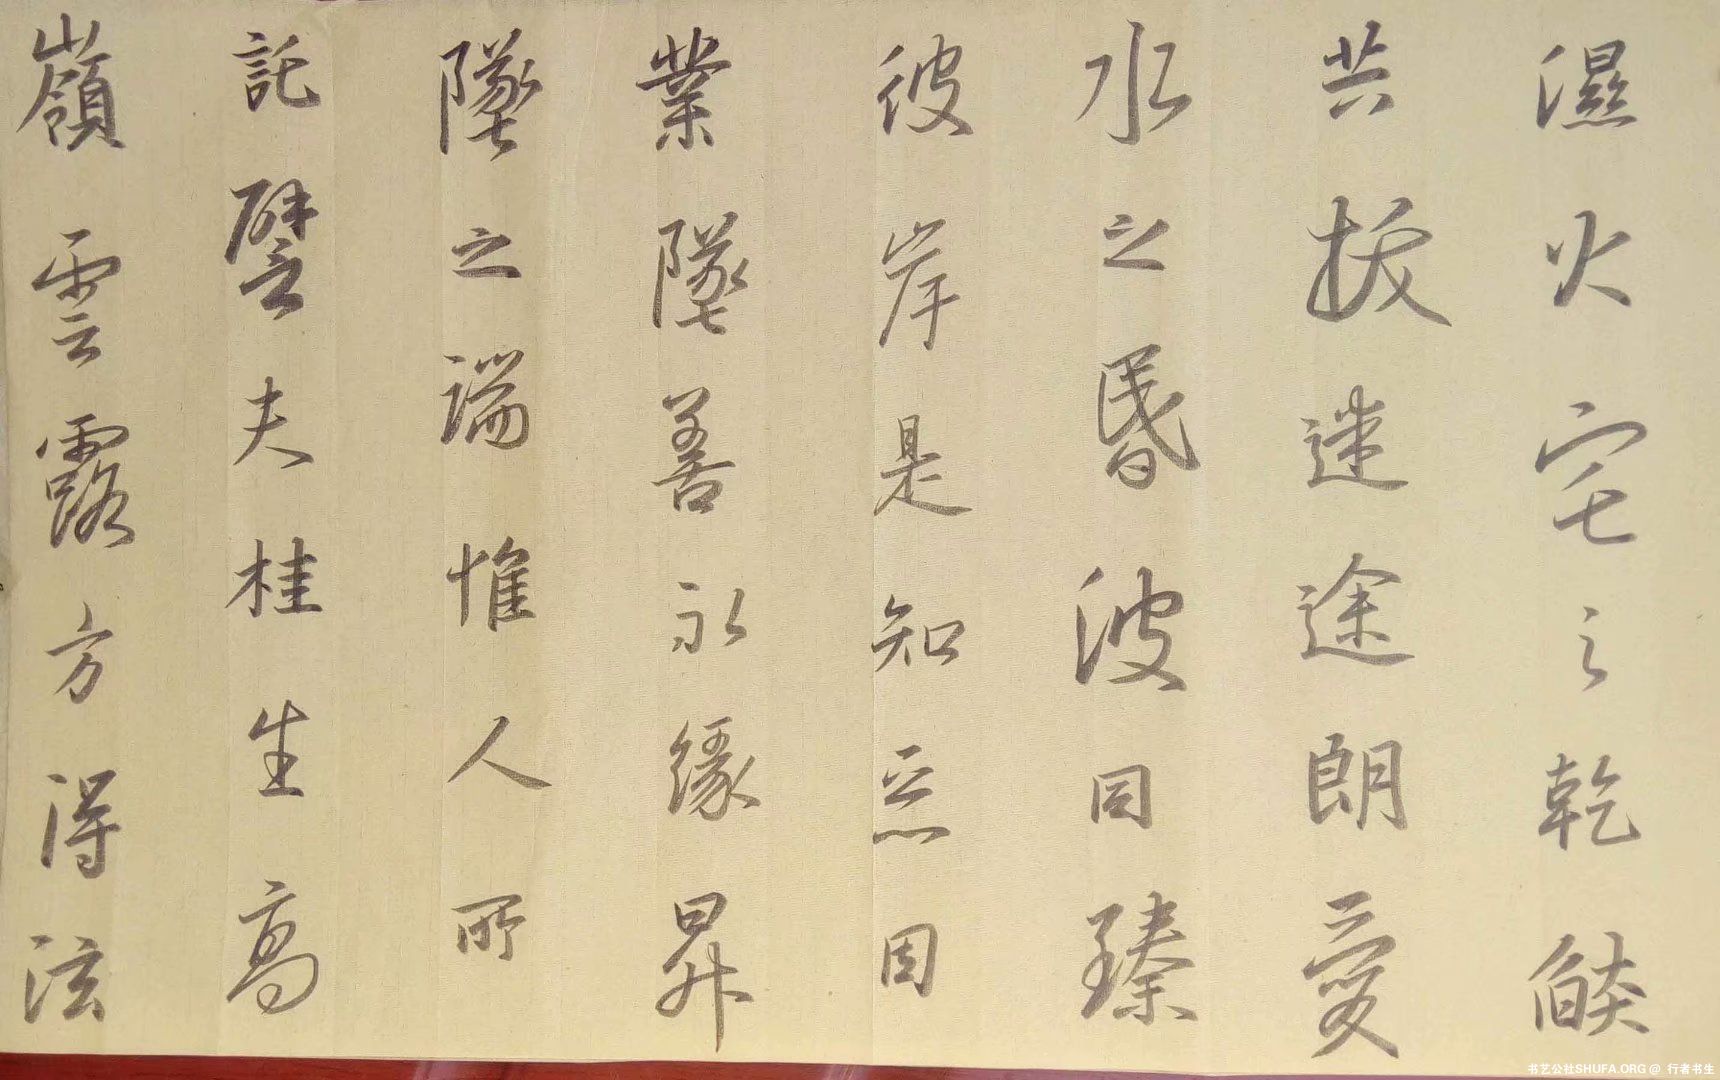 濕火宅之乾𦦨
共拔迷途朗愛
水之昏波同臻
彼岸是知惡因
業墜善永緣昇
墜之端惟人所
託譬夫桂生高
嶺雲露方得泫
书艺公社SHUFA.ORG @ 行者书生